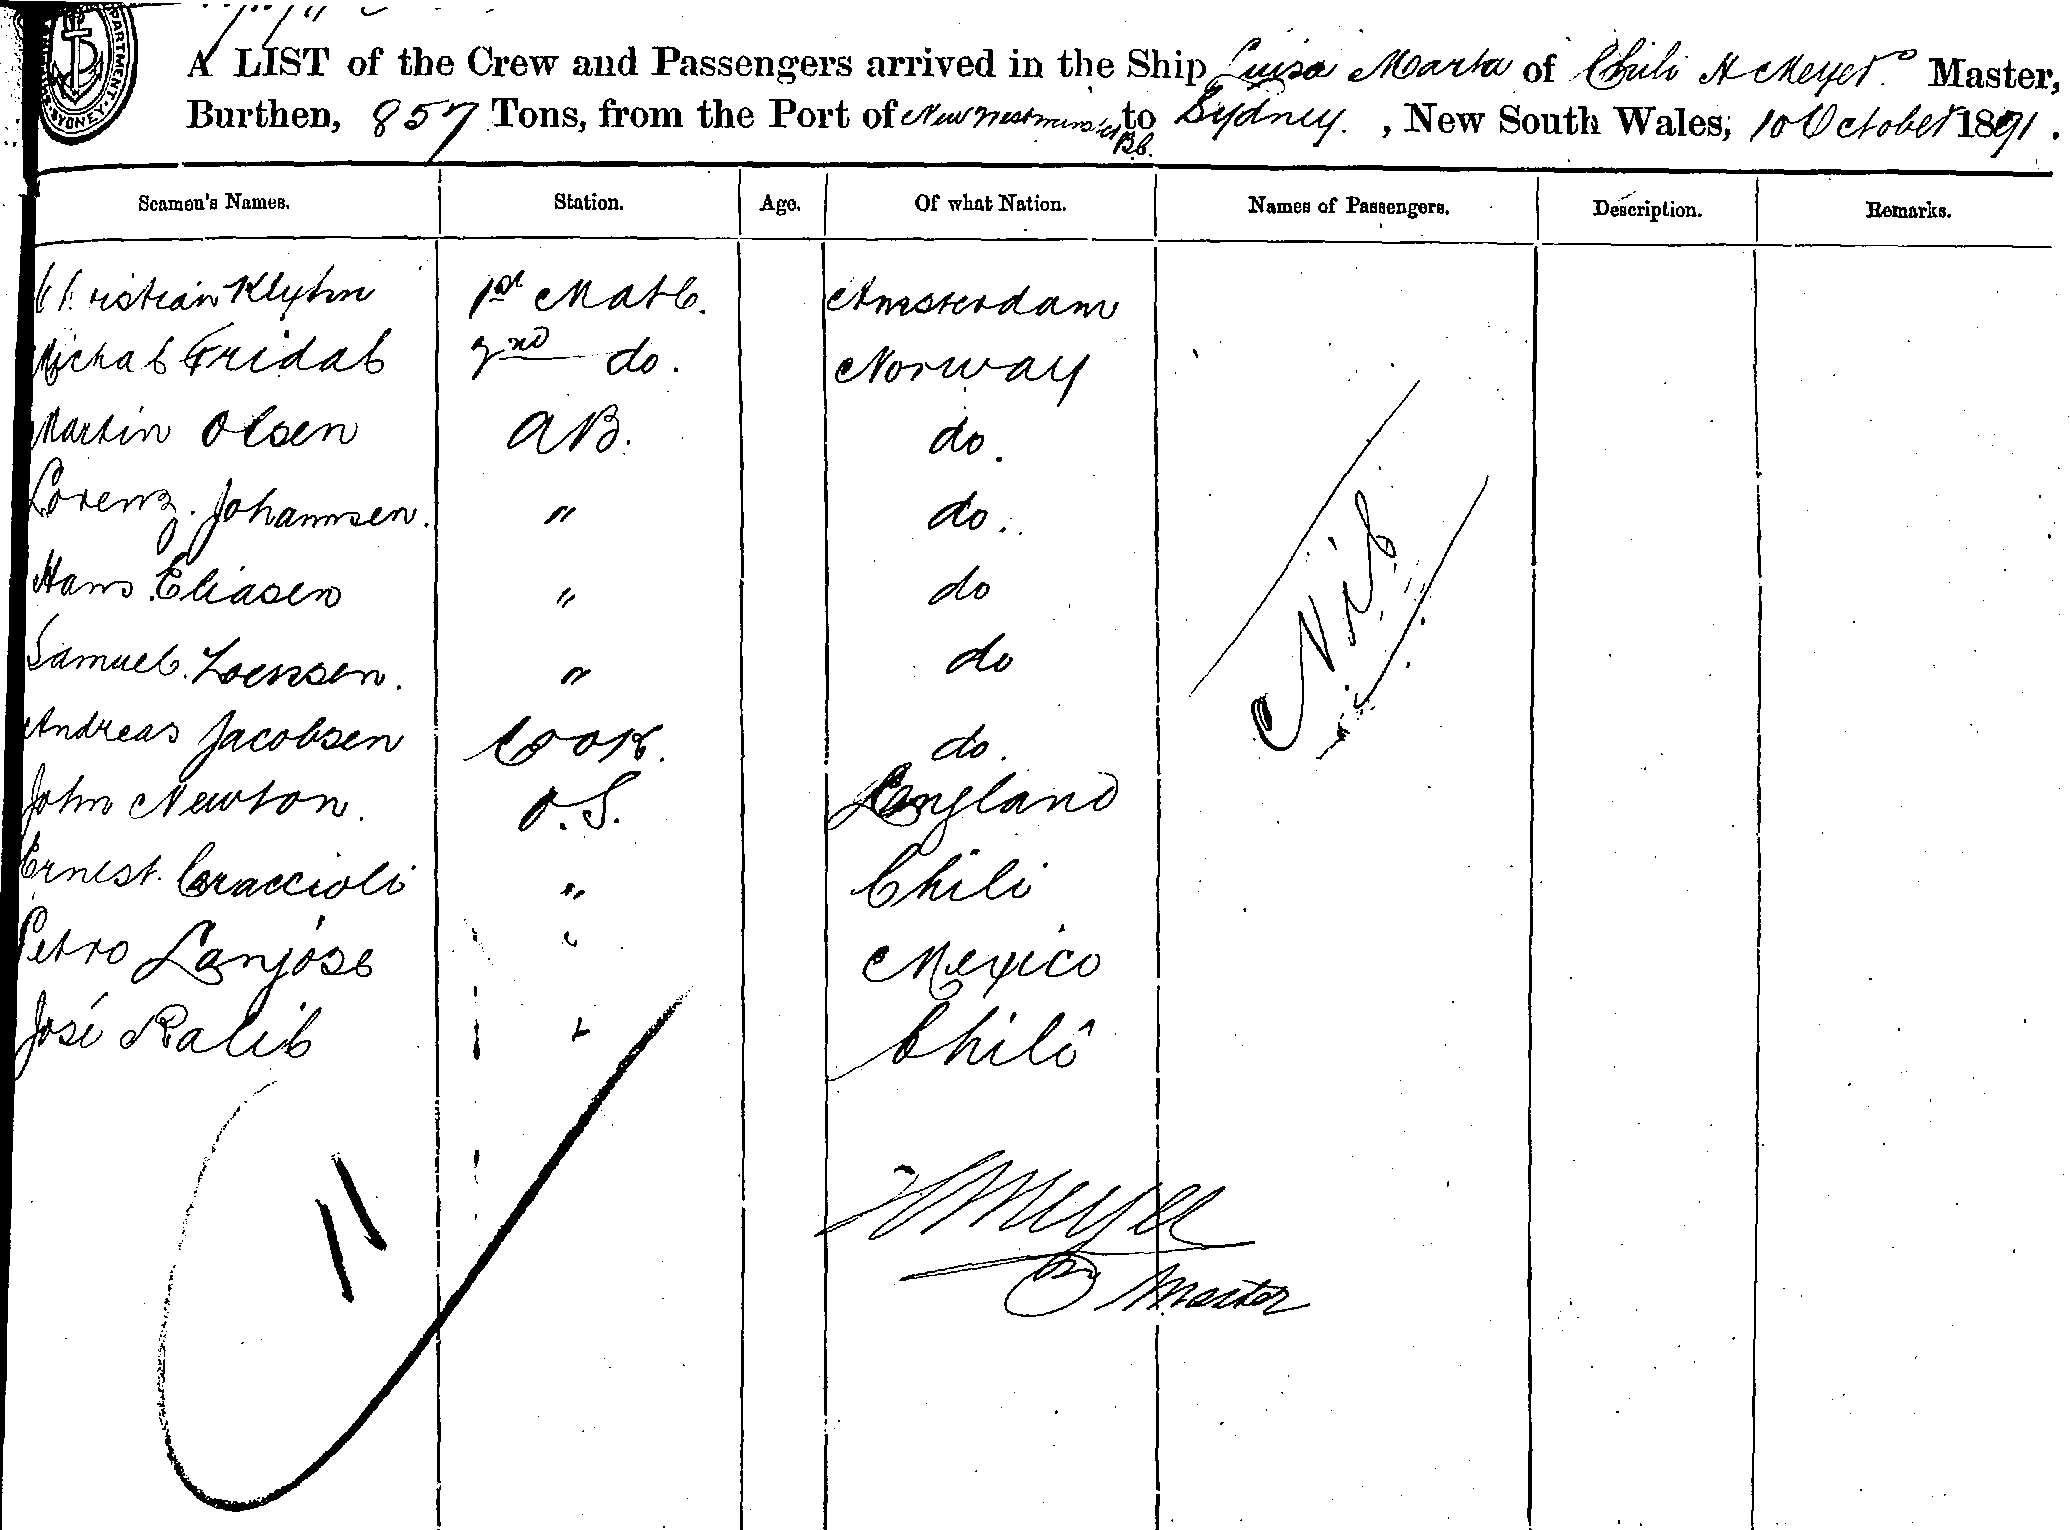 DEPARTMENT. SYDNEY
A LIST of the Crew and Passengers arrived in the Ship Luisa Marta of Chili H Meyer Master,
Burthen, 857 Tons, from the Port of New Westminster BC. to Sydney. , New South Wales, 10 October 1891.
Seamen's Names. Station. Age. Of what Nation. Names of Passengers. Description. Remarks.
Christian 1st Mate. Amsterdam
2nd do. Norway
Martin Olsen AB. do.
Lorenz Johannsen. " do.
Hans Eliasen " do
Samuel " do
Andreas Jacobsen Cook. do.
John Newton. O.S. England
Ernest Craccioli " Chili
Petro Lanjose " Mexico
José Ralil " Chili
Nil
11
H Meyer
Master